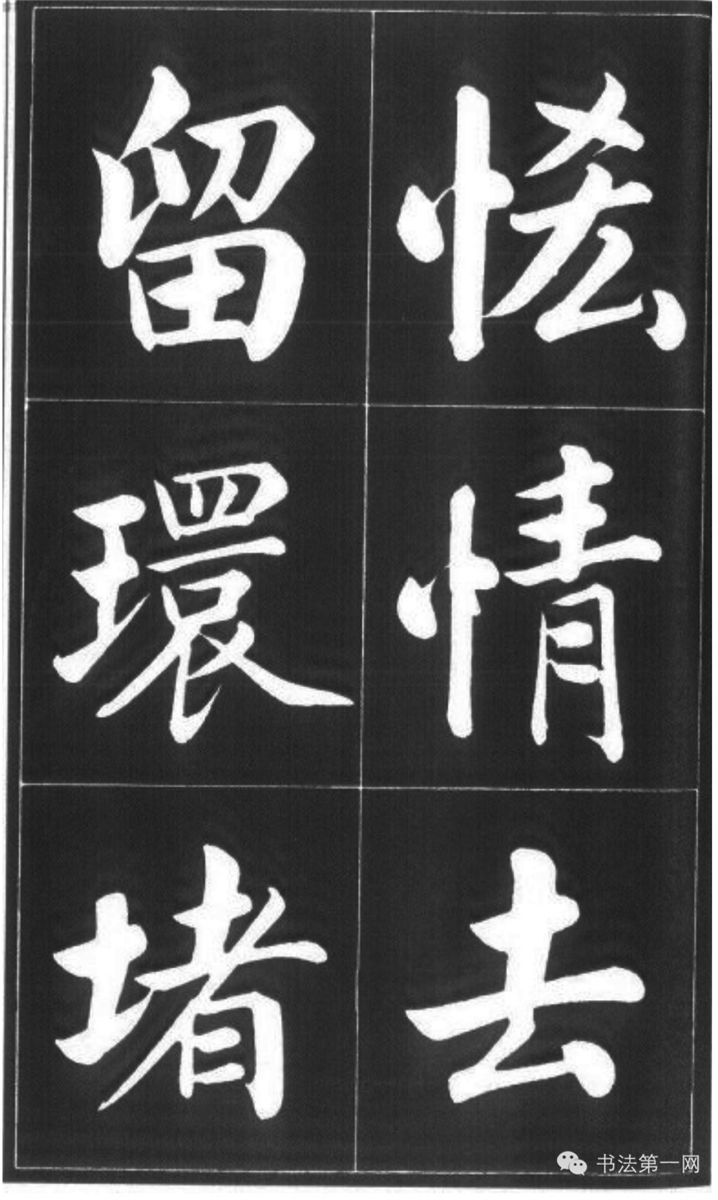 恡情去
留環堵
书法第一网